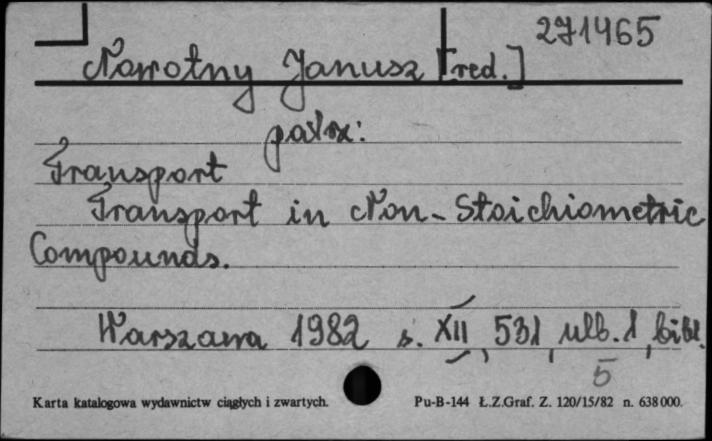 271465
Nowotny Janusz [red.]
patrz:
Transport
Transport in Non-Stoichiometric
Compounds.
Warszawa 1982 s. XII, 531, ulb. 1, bibl.
5
Karta katalogowa wydawnictw ciągłych i zwartych. Pu-B-144 Ł.Z.Graf. Z. 120/15/82 n. 638000.